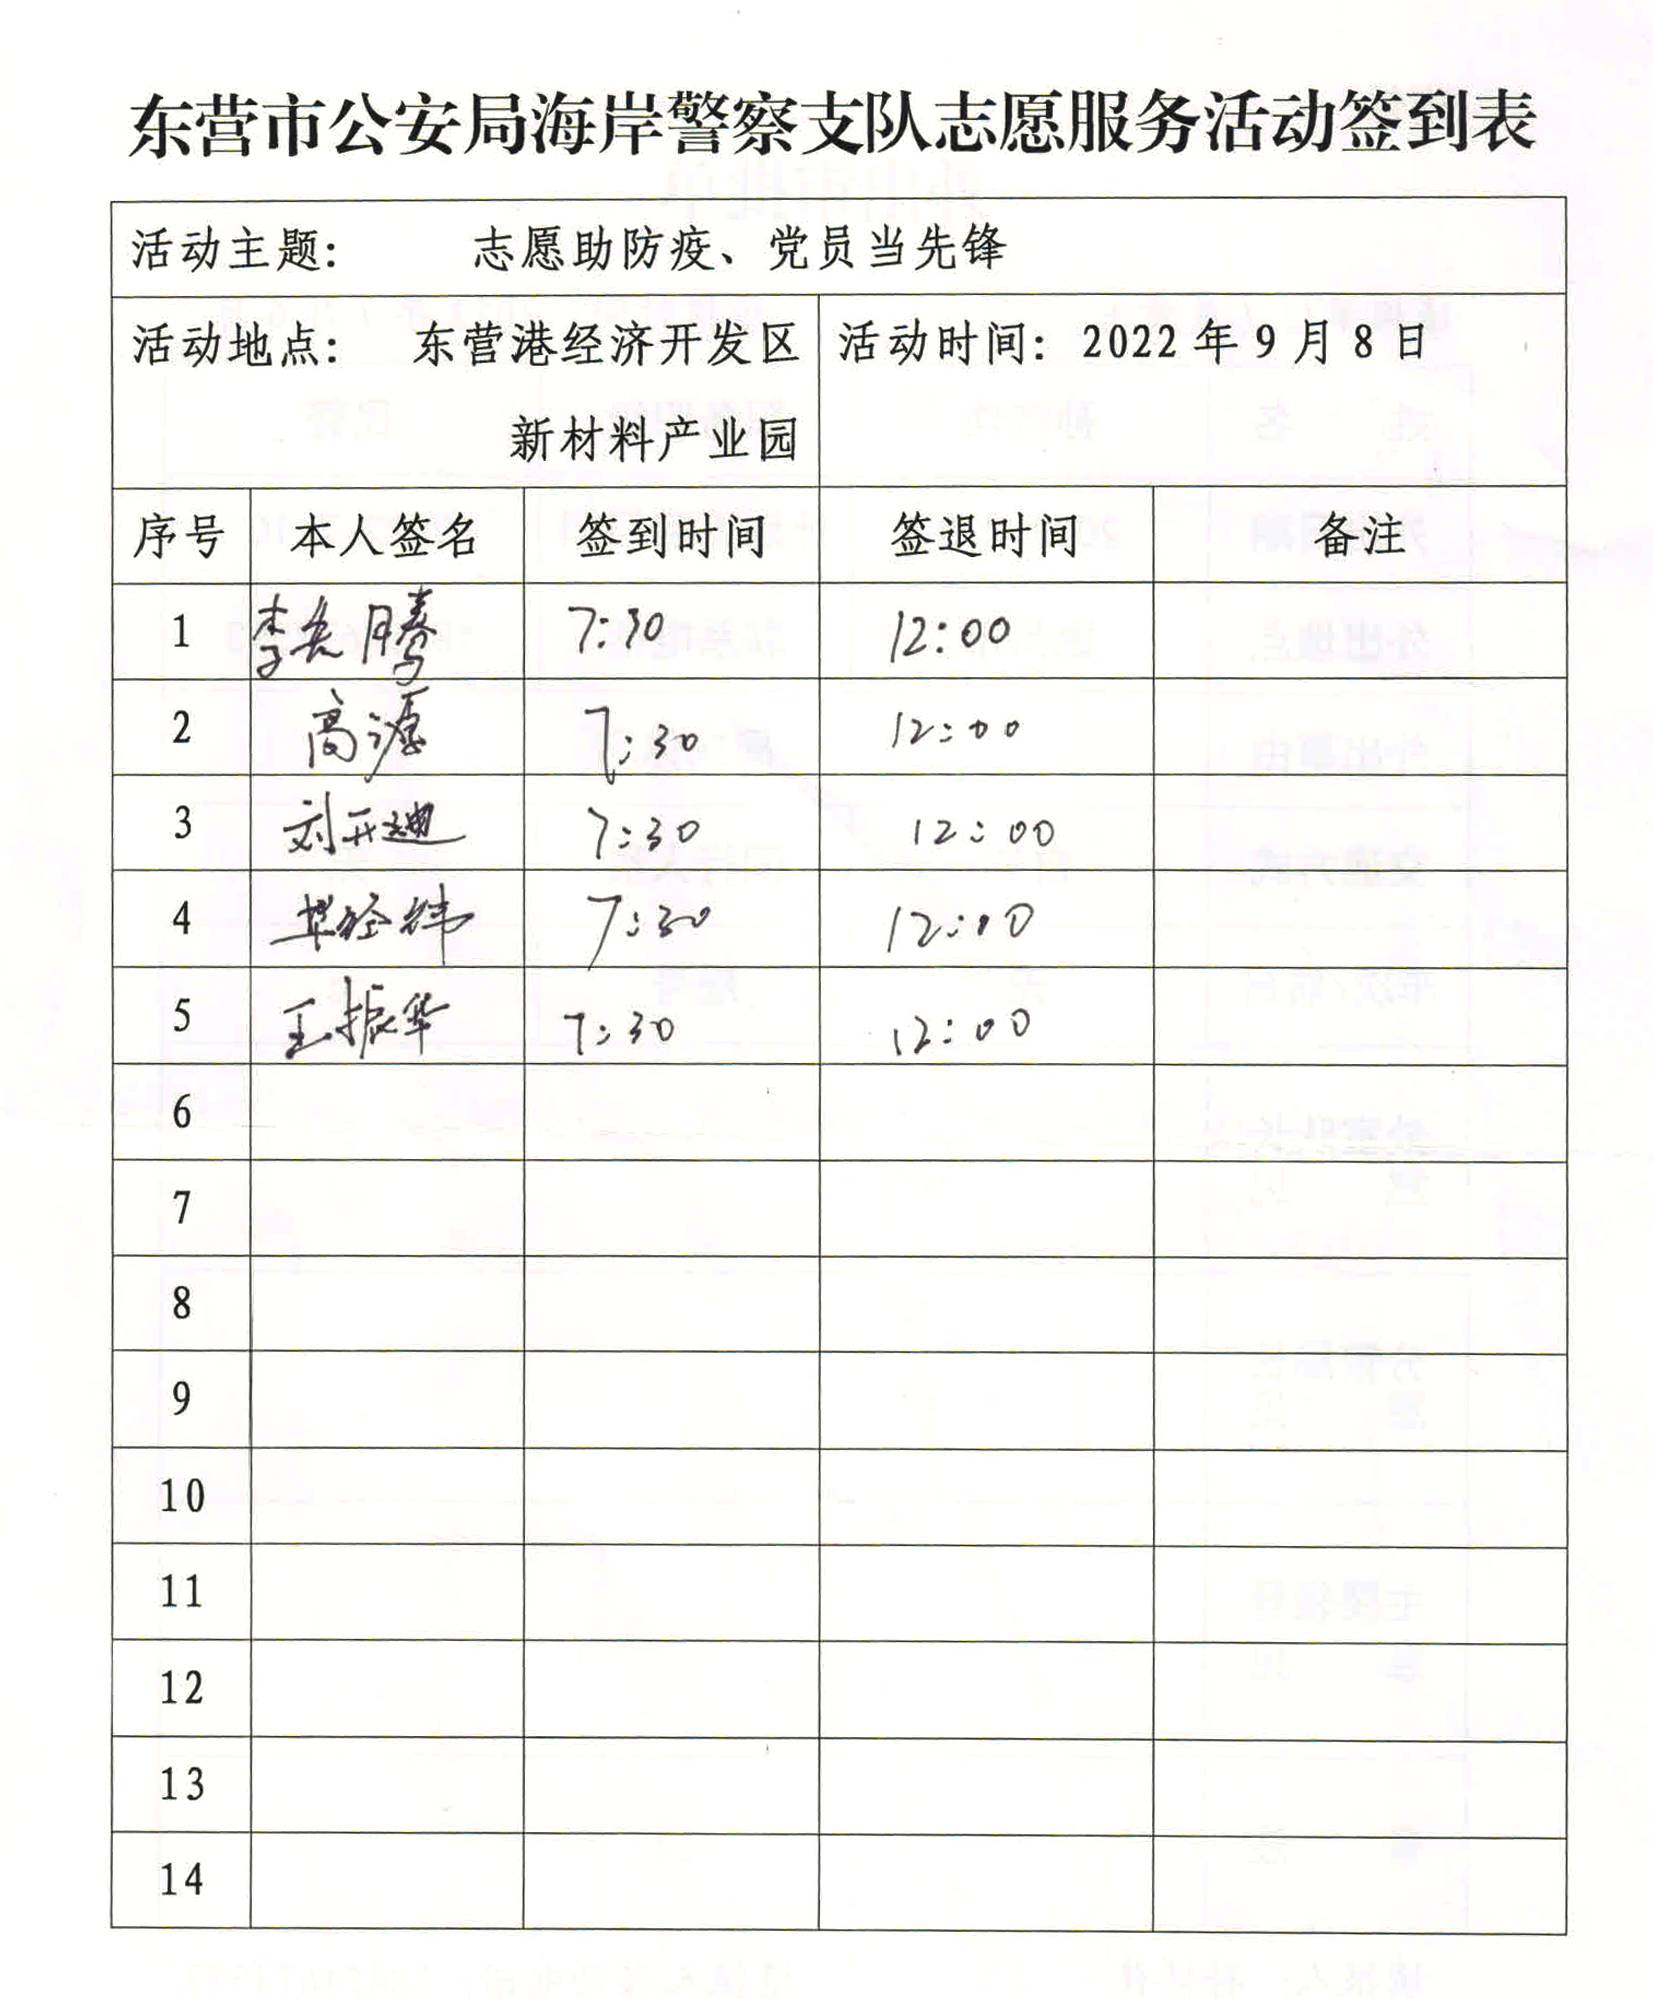 东营市公安局海岸警察支队志愿服务活动签到表
活动主题: 志愿助防疫、党员当先锋
活动地点: 东营港经济开发区 活动时间: 2022 年 9 月 8 日
新材料产业园
序号 本人签名 签到时间 签退时间 备注
1 李 腾 7:30 12:00
2 高源 7:30 12:00
3 刘开迪 7:30 12:00
4 毕经纬 7:30 12:00
5 王振华 7:30 12:00
6
7
8
9
10
11
12
13
14